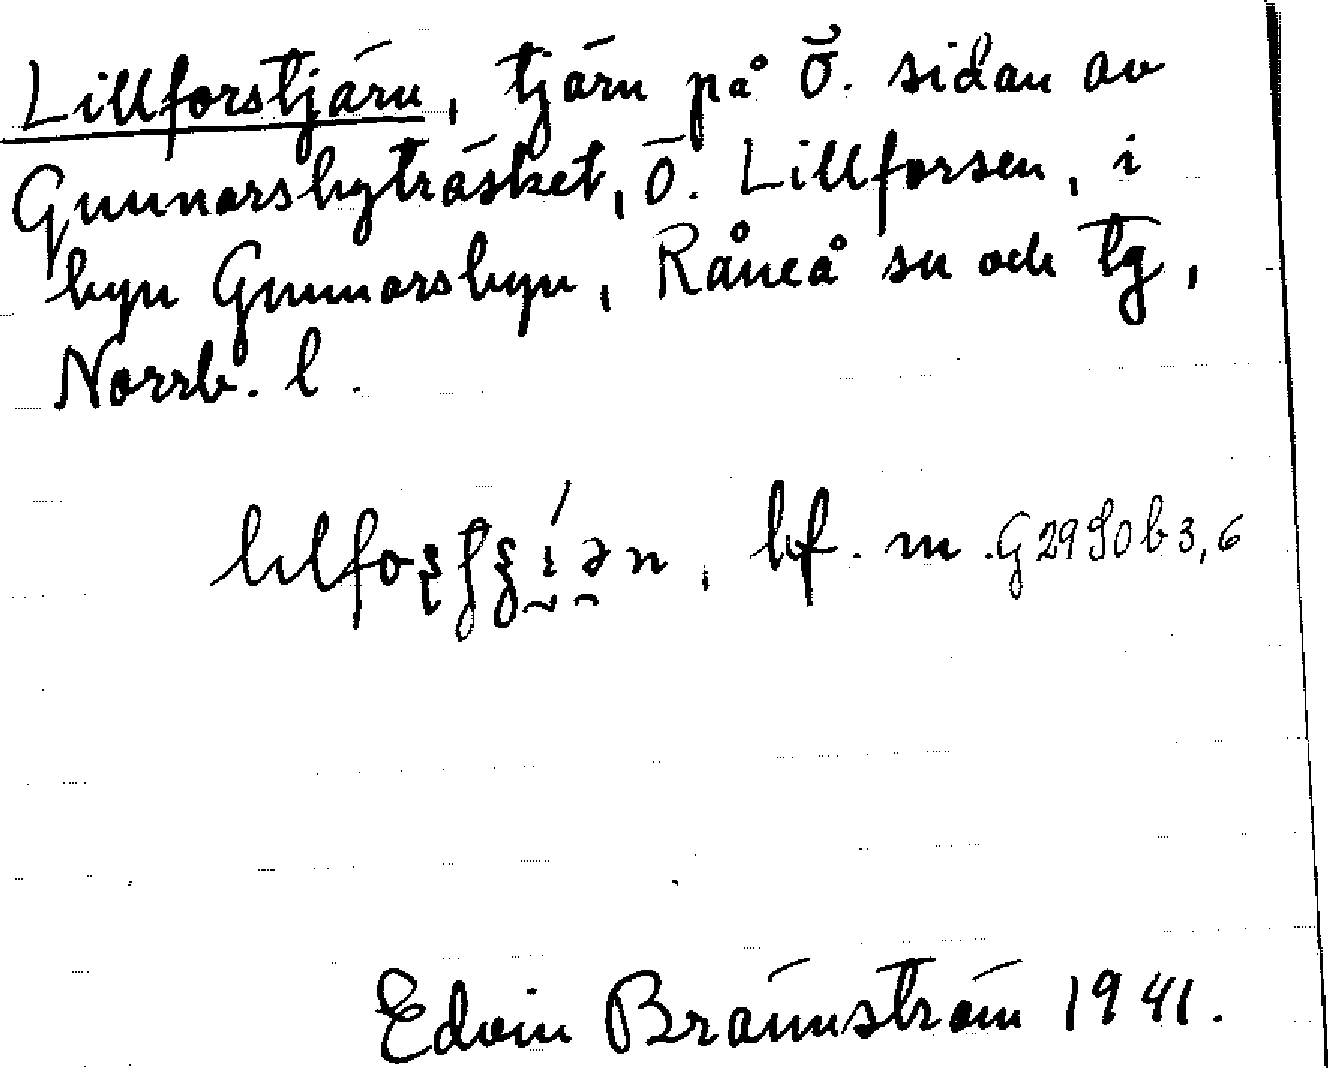 Lillforstjärn, tjärn på Ö. sidan av
Gunnarsbyträsket, Ö. Lillforsen, i
byn Gunnarsbyn, Råneå sn och tg,
Norrb. l.
bf. m. G 29 S0 b 3,6
Edvin Brännström 1941.